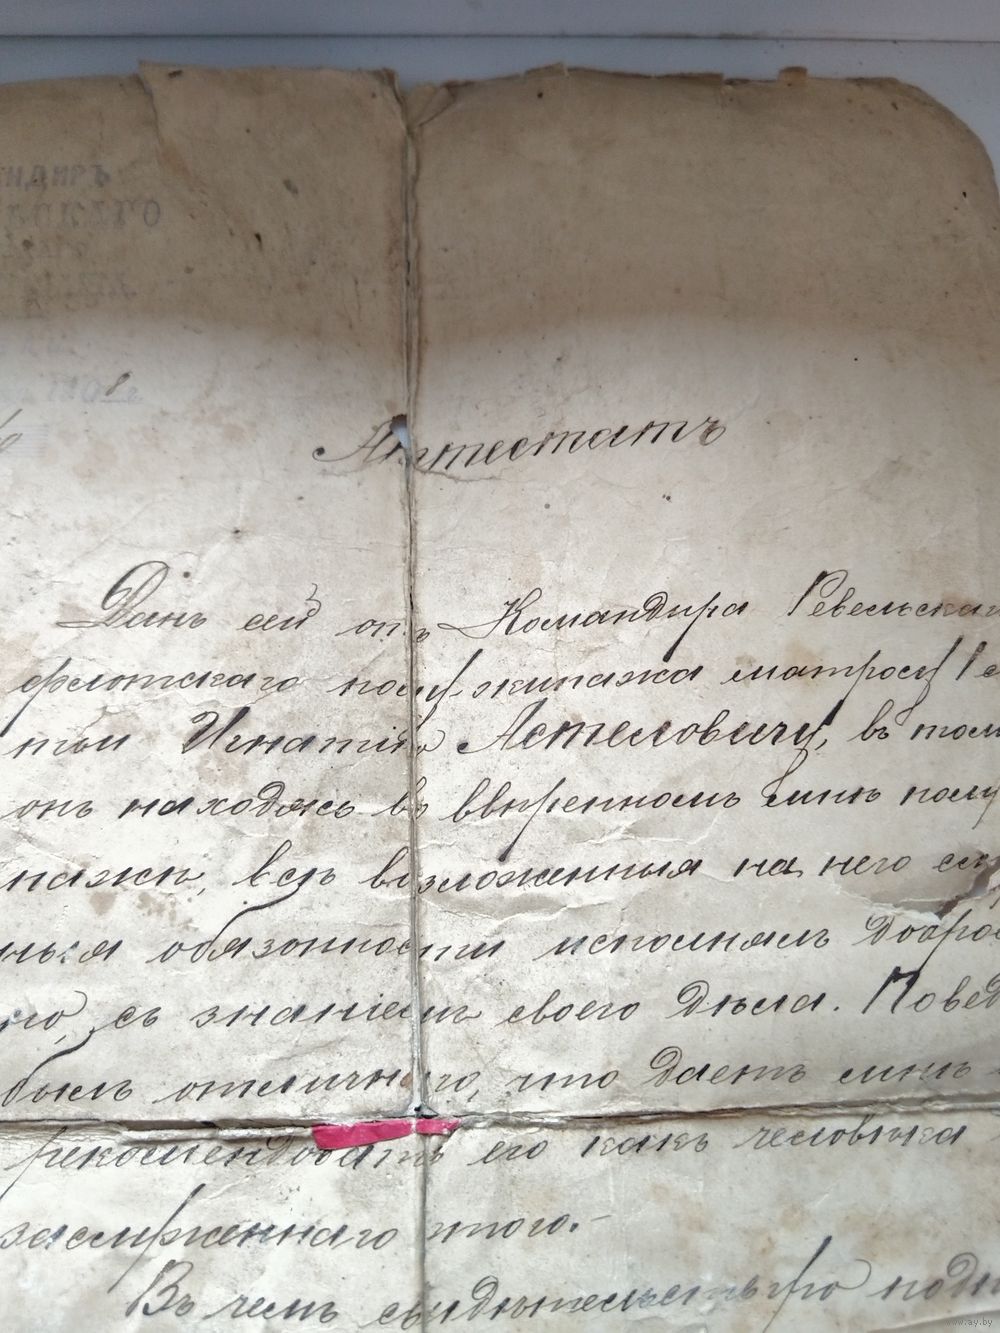 Аттестатъ
Данъ сей отъ Командира Ревельскаго
флотскаго полуэкипажа матросу
Игнатію Астеловичу, въ томъ
онъ находясь въ ввѣренномъ мнѣ полу
пажѣ, всѣ возложенныя на него
ныя обязонности исполнялъ добросо
го, съ знаніемъ своего дѣла. Повед
былъ отличнаго, что даетъ мнѣ
рекомендовать его какъ человѣка
заслуженнаго этого.-
Въ чемъ свидѣтельствую подп
www.ay.by